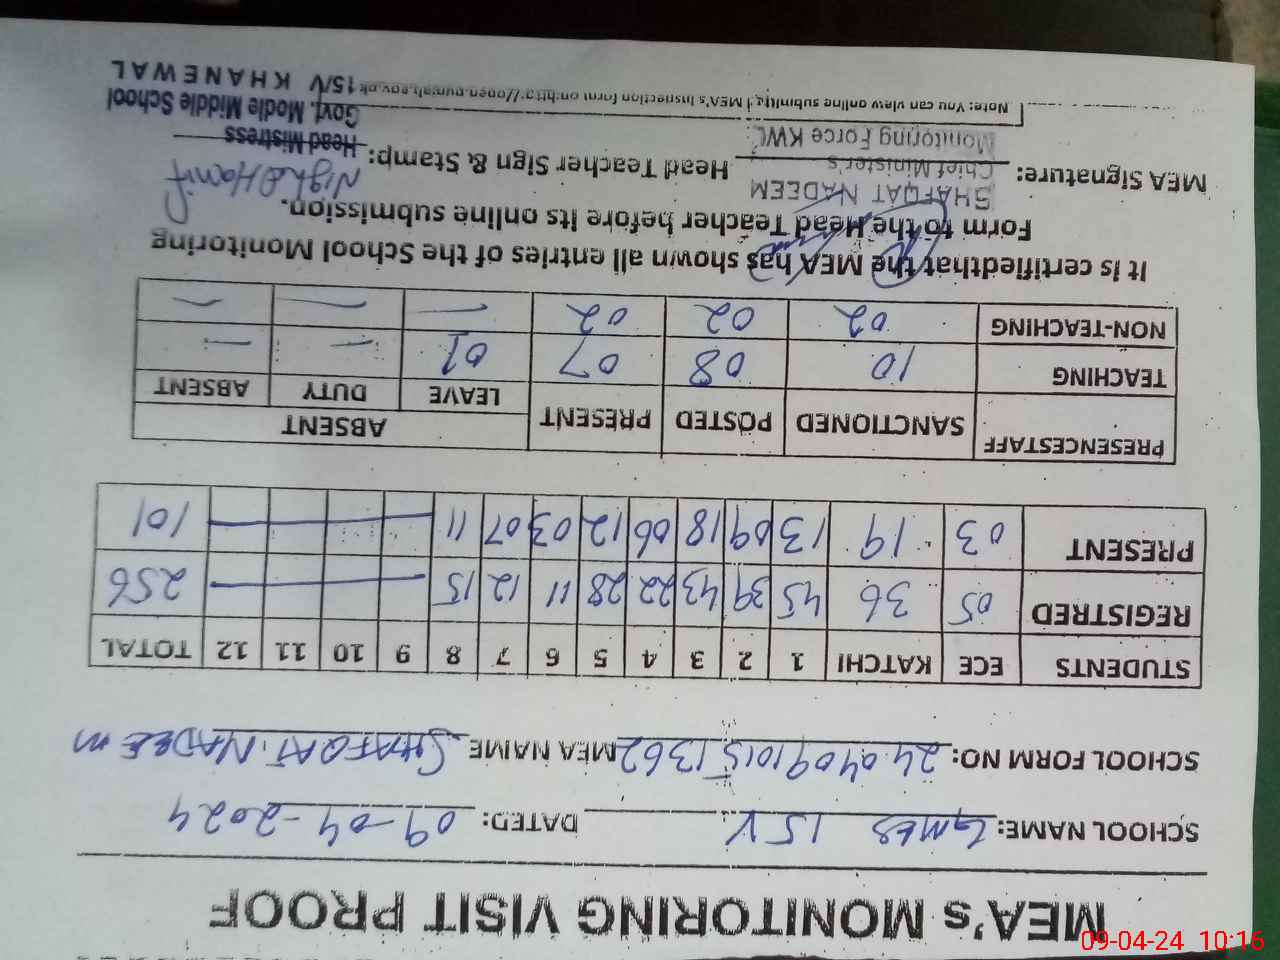 MEA's MONITORING VISIT PROOF
SCHOOL NAME: GMES 15V DATED: 09-04-2024
SCHOOL FORM NO: 24040910151362 MEA NAME SHAFQAT NADEEM
STUDENTS ECE KATCHI 1 2 3 4 5 6 7 8 9 10 11 12 TOTAL
REGISTRED 05 36 45 39 43 22 28 11 12 15 256
PRESENT 03 19 13 09 18 06 12 03 07 11 101
PRESENCESTAFF SANCTIONED POSTED PRESENT ABSENT
LEAVE DUTY ABSENT
TEACHING 10 08 07 01 — — 
NON-TEACHING 02 02 02 — — —
It is certifiedthat the MEA has shown all entries of the School Monitoring
Form to the Head Teacher before its online submission.
SHAFQAT NADEEM
MEA Signature: Chief Minister's Head Teacher Sign & Stamp:
Monitoring Force KWL
Head Mistress
Govt. Modle Middle School
15/V KHANEWAL
Note: You can view online submitted MEA's Inspection form on:http://open.punjab.gov.pk
09-04-24 10:16